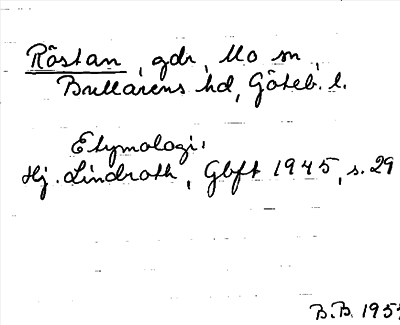 Röstan, gdr, Mo sn,
Bullarens hd, Göteb. l.
Etymologi:
Hj. Lindroth, Gbft 1945, s. 29
B.B. 195